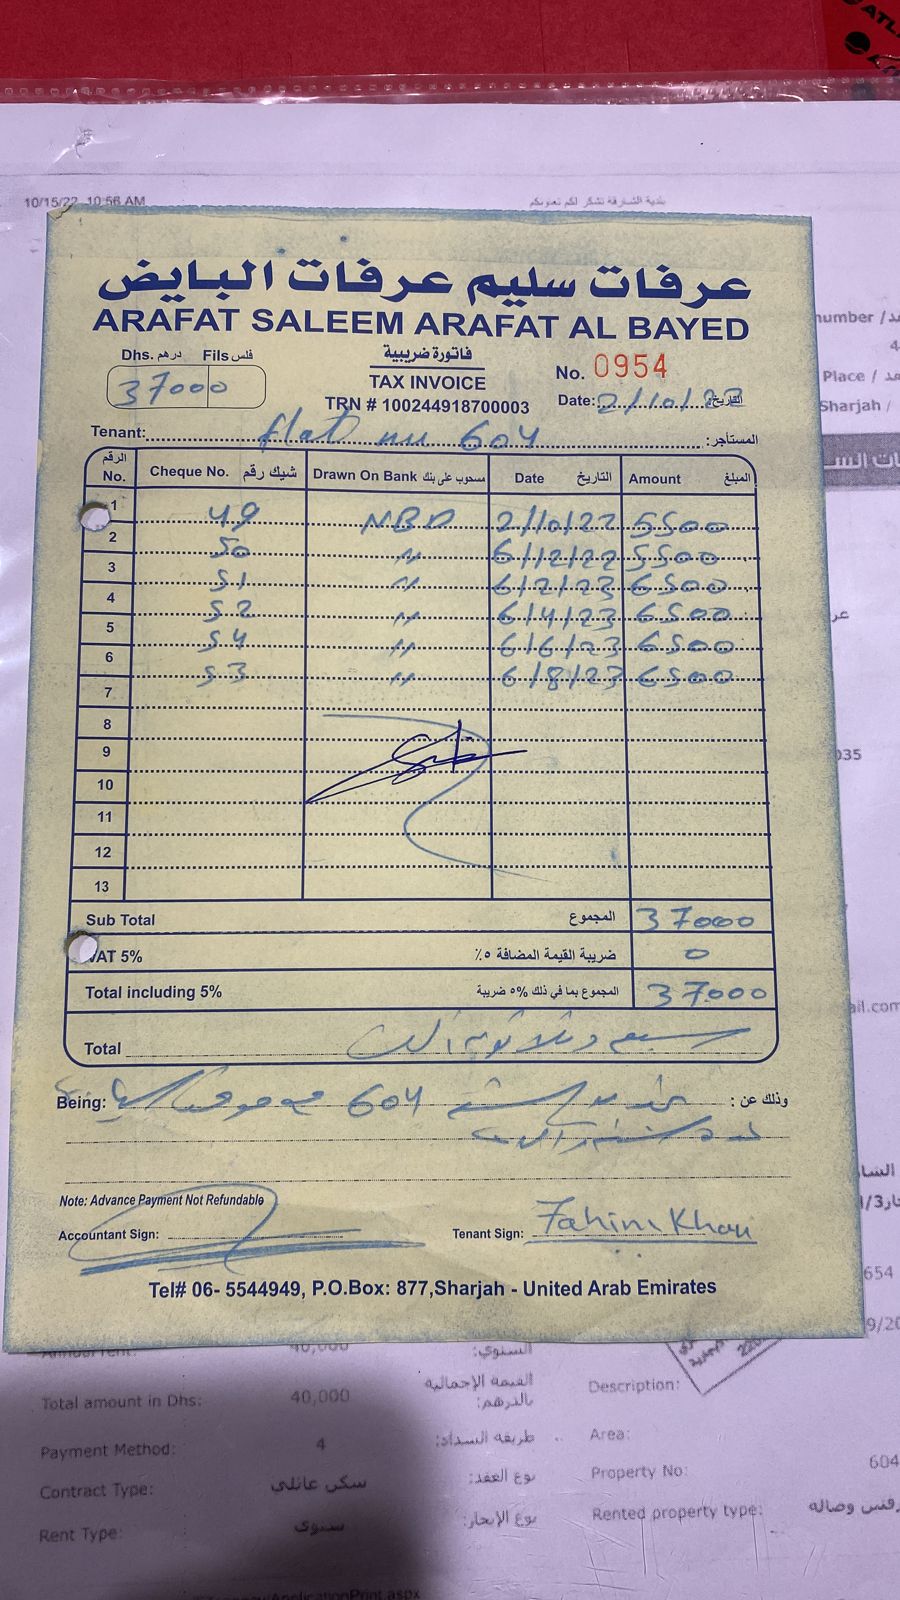 ATL
10/15/22, 10:56 AM
بلدية الشارقة تشكر لكم تعاونكم
عرفات سليم عرفات البايض
ARAFAT SALEEM ARAFAT AL BAYED
Dhs. درهم Fils فلس
37000
فاتورة ضريبية
TAX INVOICE
TRN # 100244918700003
No. 0954
Date: 2/10/22 التاريخ:
Tenant: flat nu 604 المستأجر:
الرقم No. Cheque No. شيك رقم Drawn On Bank مسحوب على بنك Date التاريخ Amount المبلغ
1 49 NBD 2/10/22 5500
2 50 〃 6/12/22 5500
3 51 〃 6/2/23 6500
4 52 〃 6/4/23 6500
5 54 〃 6/6/23 6500
6 53 〃 6/8/23 6500
7
8
9
10
11
12
13
Sub Total المجموع 37000
VAT 5% ضريبة القيمة المضافة ٥٪ 0
Total including 5% المجموع بما في ذلك %٥ ضريبة 37000
Total سبع وثلاثون الف
Being: 604 وذلك عن :
Note: Advance Payment Not Refundable
Accountant Sign:
Tenant Sign: Fahim Khan
Tel# 06- 5544949, P.O.Box: 877,Sharjah - United Arab Emirates
number /
Place /
Sharjah /
035
ail.com
654
9/20
Annual rent: 40,000 السنوي:
Total amount in Dhs: 40,000 القيمة الإجمالية بالدرهم:
Payment Method: 4 طريقة السداد:
Contract Type: سكن عائلى نوع العقد:
Rent Type: سنوى نوع الإيجار:
Description:
Area:
Property No: 604
Rented property type: وصاله
ApplicationPrint.aspx